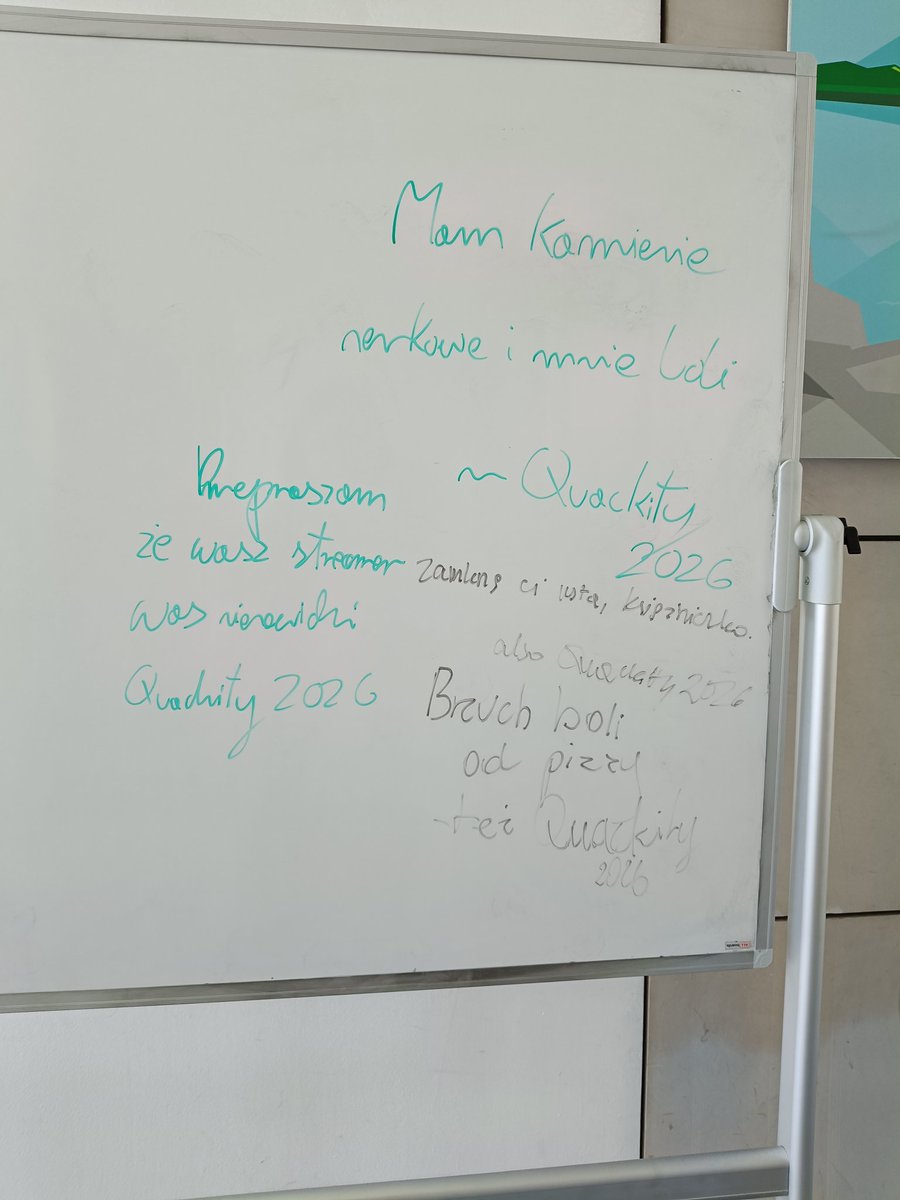 Mam kamienie
nerkowe i mnie boli
~ Quackity
2026
Przepraszam
że wasz streamer
was nienawidzi
Quackity 2026
zamknę ci usta, księżniczko.
also Quackity 2026
Brzuch boli
od pizzy
też Quackity
2026